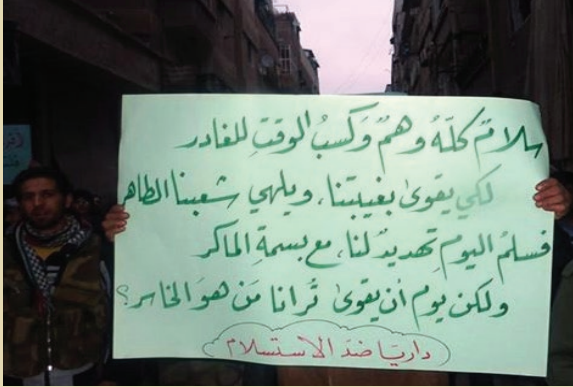 سلامٌ كلّهُ وهمٌ وَكسبُ الوقتِ للغادر
لكي يقوىٰ بغيبتنا، ويلهي شعبنا الطاهر
فسلمُ اليوم تهديدٌ لنا، مع بسمةِ الماكر
ولكن يوم أن يقوىٰ تُرانا مَن هوَ الخاسر؟
داريّا ضدّ الاستسلام